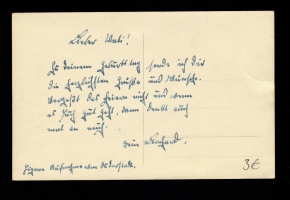 Lieber Vati!
Zu deinem Geburtstag sende ich dir
die herzlichsten Grüße und Wünsche.
Vergeßt das Feiern nicht und wenn
es Euch gut geht, dann denkt auch
mal an mich.
Dein Leonhard.
Eigene Aufnahme vom
3€